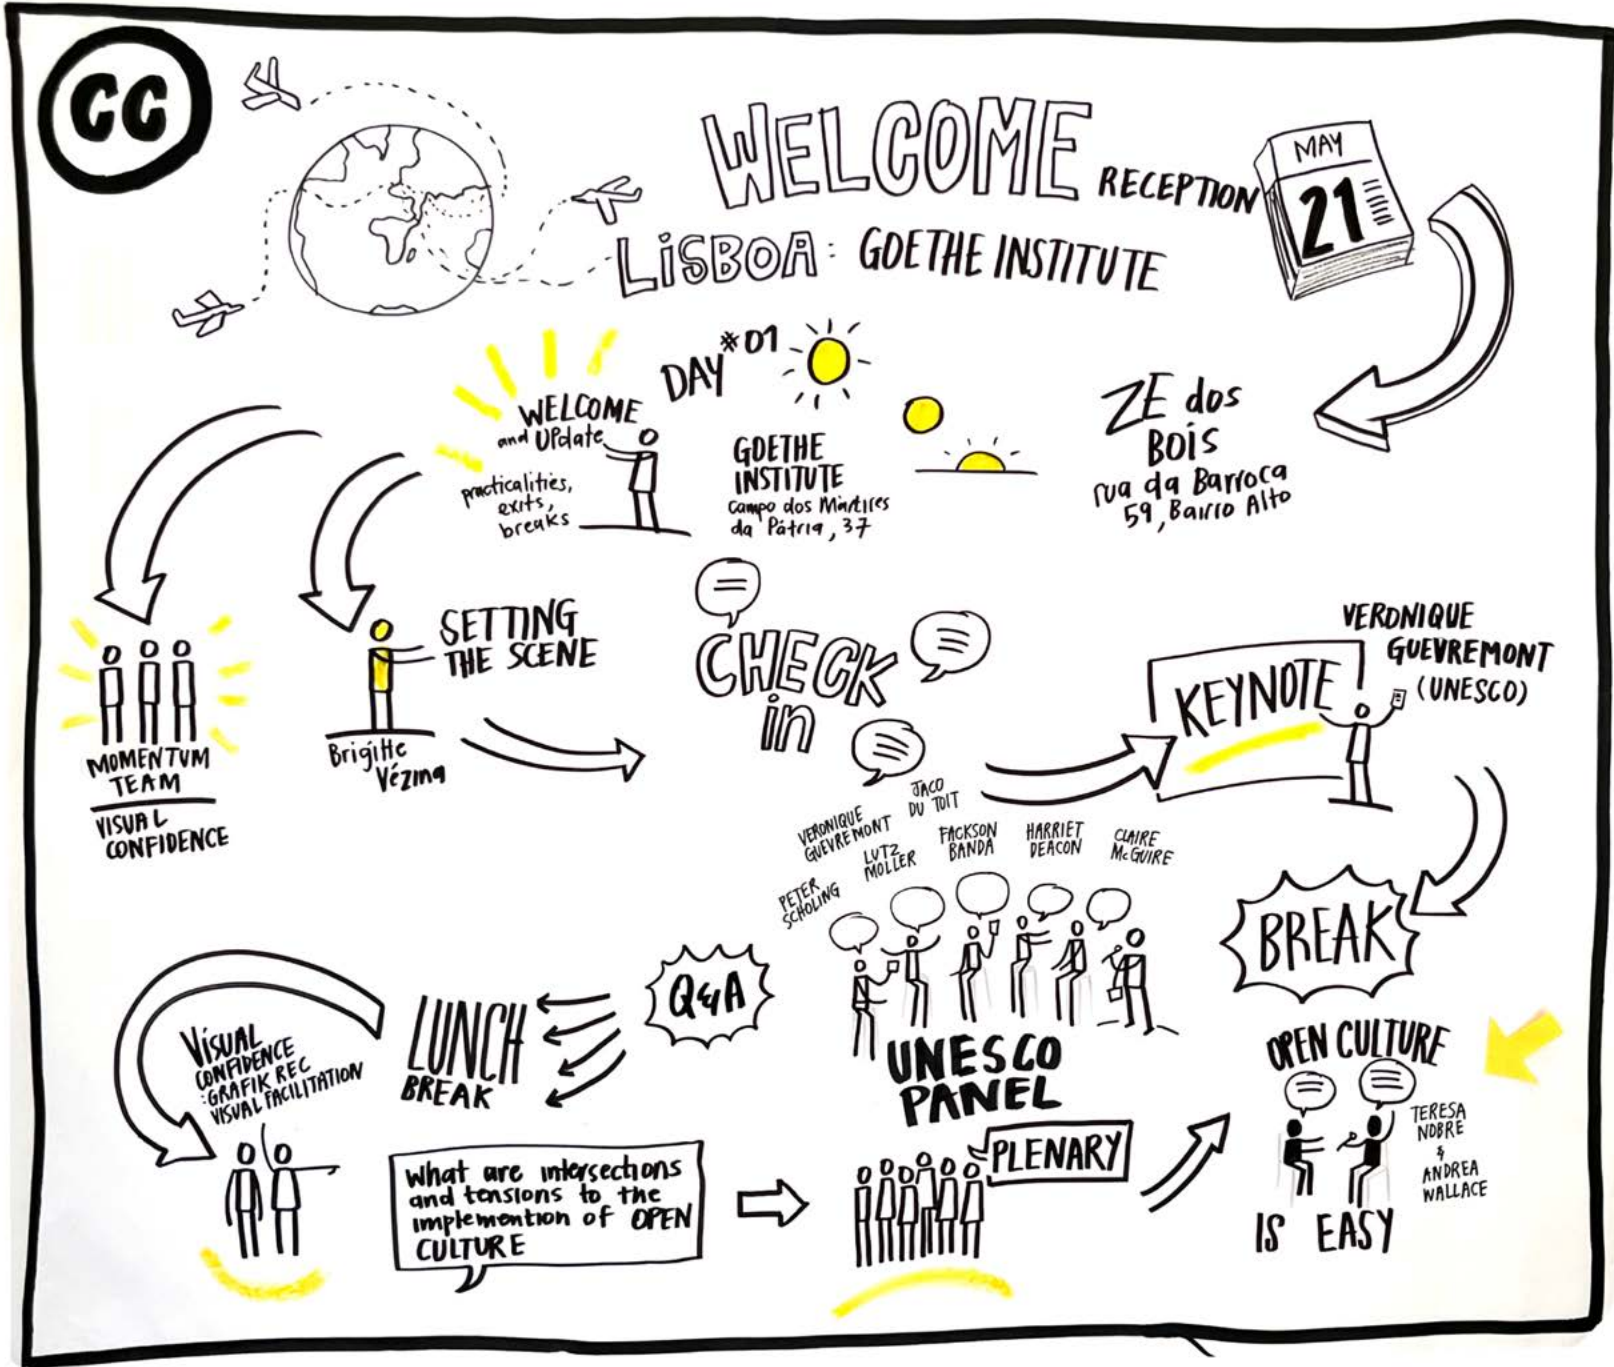 CC
WELCOME
RECEPTION
LISBOA: GOETHE INSTITUTE
MAY
21
DAY #01
WELCOME
and UPdate
practicalities,
exits,
breaks
GOETHE
INSTITUTE
Campo dos Mártires
da Pátria, 37
ZE dos
BOIS
rua da Barroca
59, Bairro Alto
MOMENTUM
TEAM
VISUAL
CONFIDENCE
SETTING
THE SCENE
Brigitte
Vézina
CHECK
in
KEYNOTE
VERONIQUE
GUEVREMONT
(UNESCO)
BREAK
PETER
SCHOLING
VERONIQUE
GUEVREMONT
LUTZ
MOLLER
JACO
DU TOIT
FACKSON
BANDA
HARRIET
DEACON
CLAIRE
McGUIRE
UNESCO
PANEL
Q&A
LUNCH
BREAK
VISUAL
CONFIDENCE
:GRAFIK REC
VISUAL FACILITATION
What are intersections
and tensions to the
implemention of OPEN
CULTURE
PLENARY
OPEN CULTURE
TERESA
NOBRE
&
ANDREA
WALLACE
IS EASY